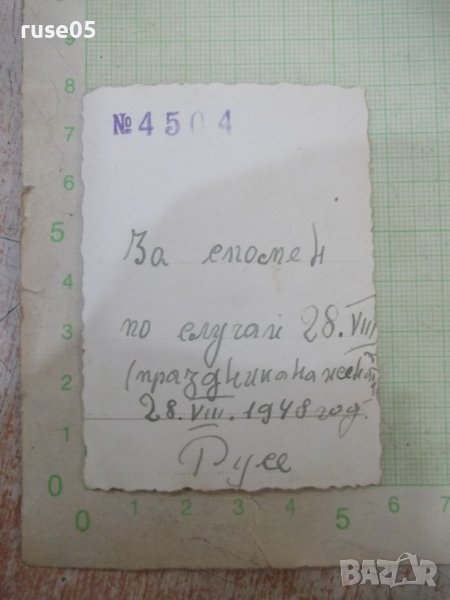 ruse05
№ 4504
За спомен
по случай 28.VIII
(празднина на жената
28.VIII.1948 год.
Русе
8
7
6
5
4
3
2
1
0
0
1
2
3
4
5
6
7
BAZAR